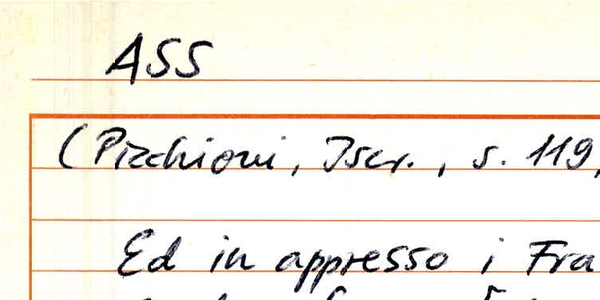 ASS
(Picchioni, Iscr., s. 119,
Ed in appresso i Fra